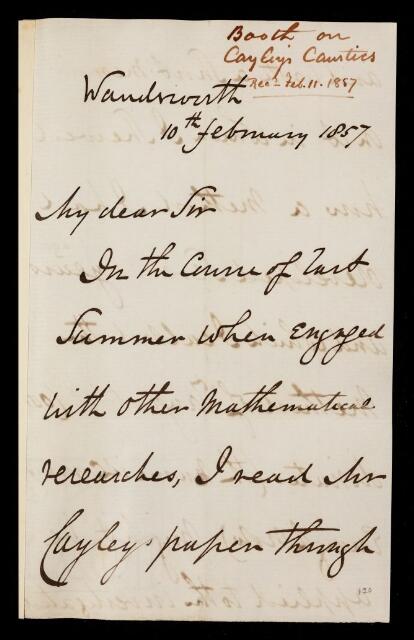 Booth on
Cayley's Caustics
Recd. Feb. 11. 1857
Wandsworth
10th February 1857
My dear Sir
In the Course of last
Summer when engaged
with other Mathematical
researches, I read Mr
Cayleys paper through
120